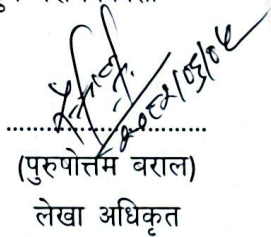 २०८२/०६/०५
(पुरुषोत्तम वराल)
लेखा अधिकृत